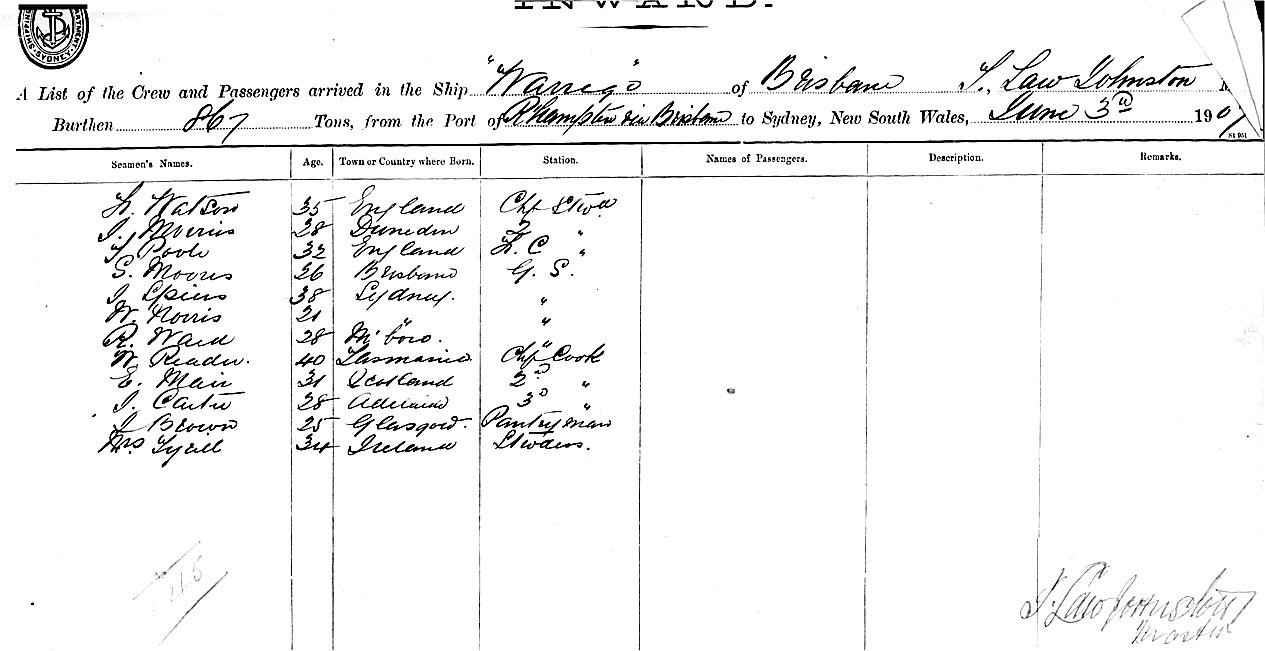 INWARD.
SYDNEY
A List of the Crew and Passengers arrived in the Ship "Warrego" of Brisbane T. Law Johnston
Burthen 867 Tons, from the Port of R'hampton via Brisbane to Sydney, New South Wales, June 3rd 1901
St 951
Seamen's Names. Age. Town or Country where Born. Station. Names of Passengers. Description. Remarks.
H. Watson 35 England Chf Stwd
J. Morris 28 Dunedin 2 "
T. Poole 32 England F. C "
S. Moores 26 Brisbane G. S.
J. Spiers 38 Sydney. "
W. Norris 21 " "
R. Ward 28 M'boro. "
W. Reader. 40 Tasmania Chf Cook
E. Mair 31 Scotland 2nd "
J. Carter 28 Adelaide 3d "
J Brown 25 Glasgow. Pantryman
Mrs Tyrell 34 Ireland Stwdess.
48
T. Law Johnston
Master